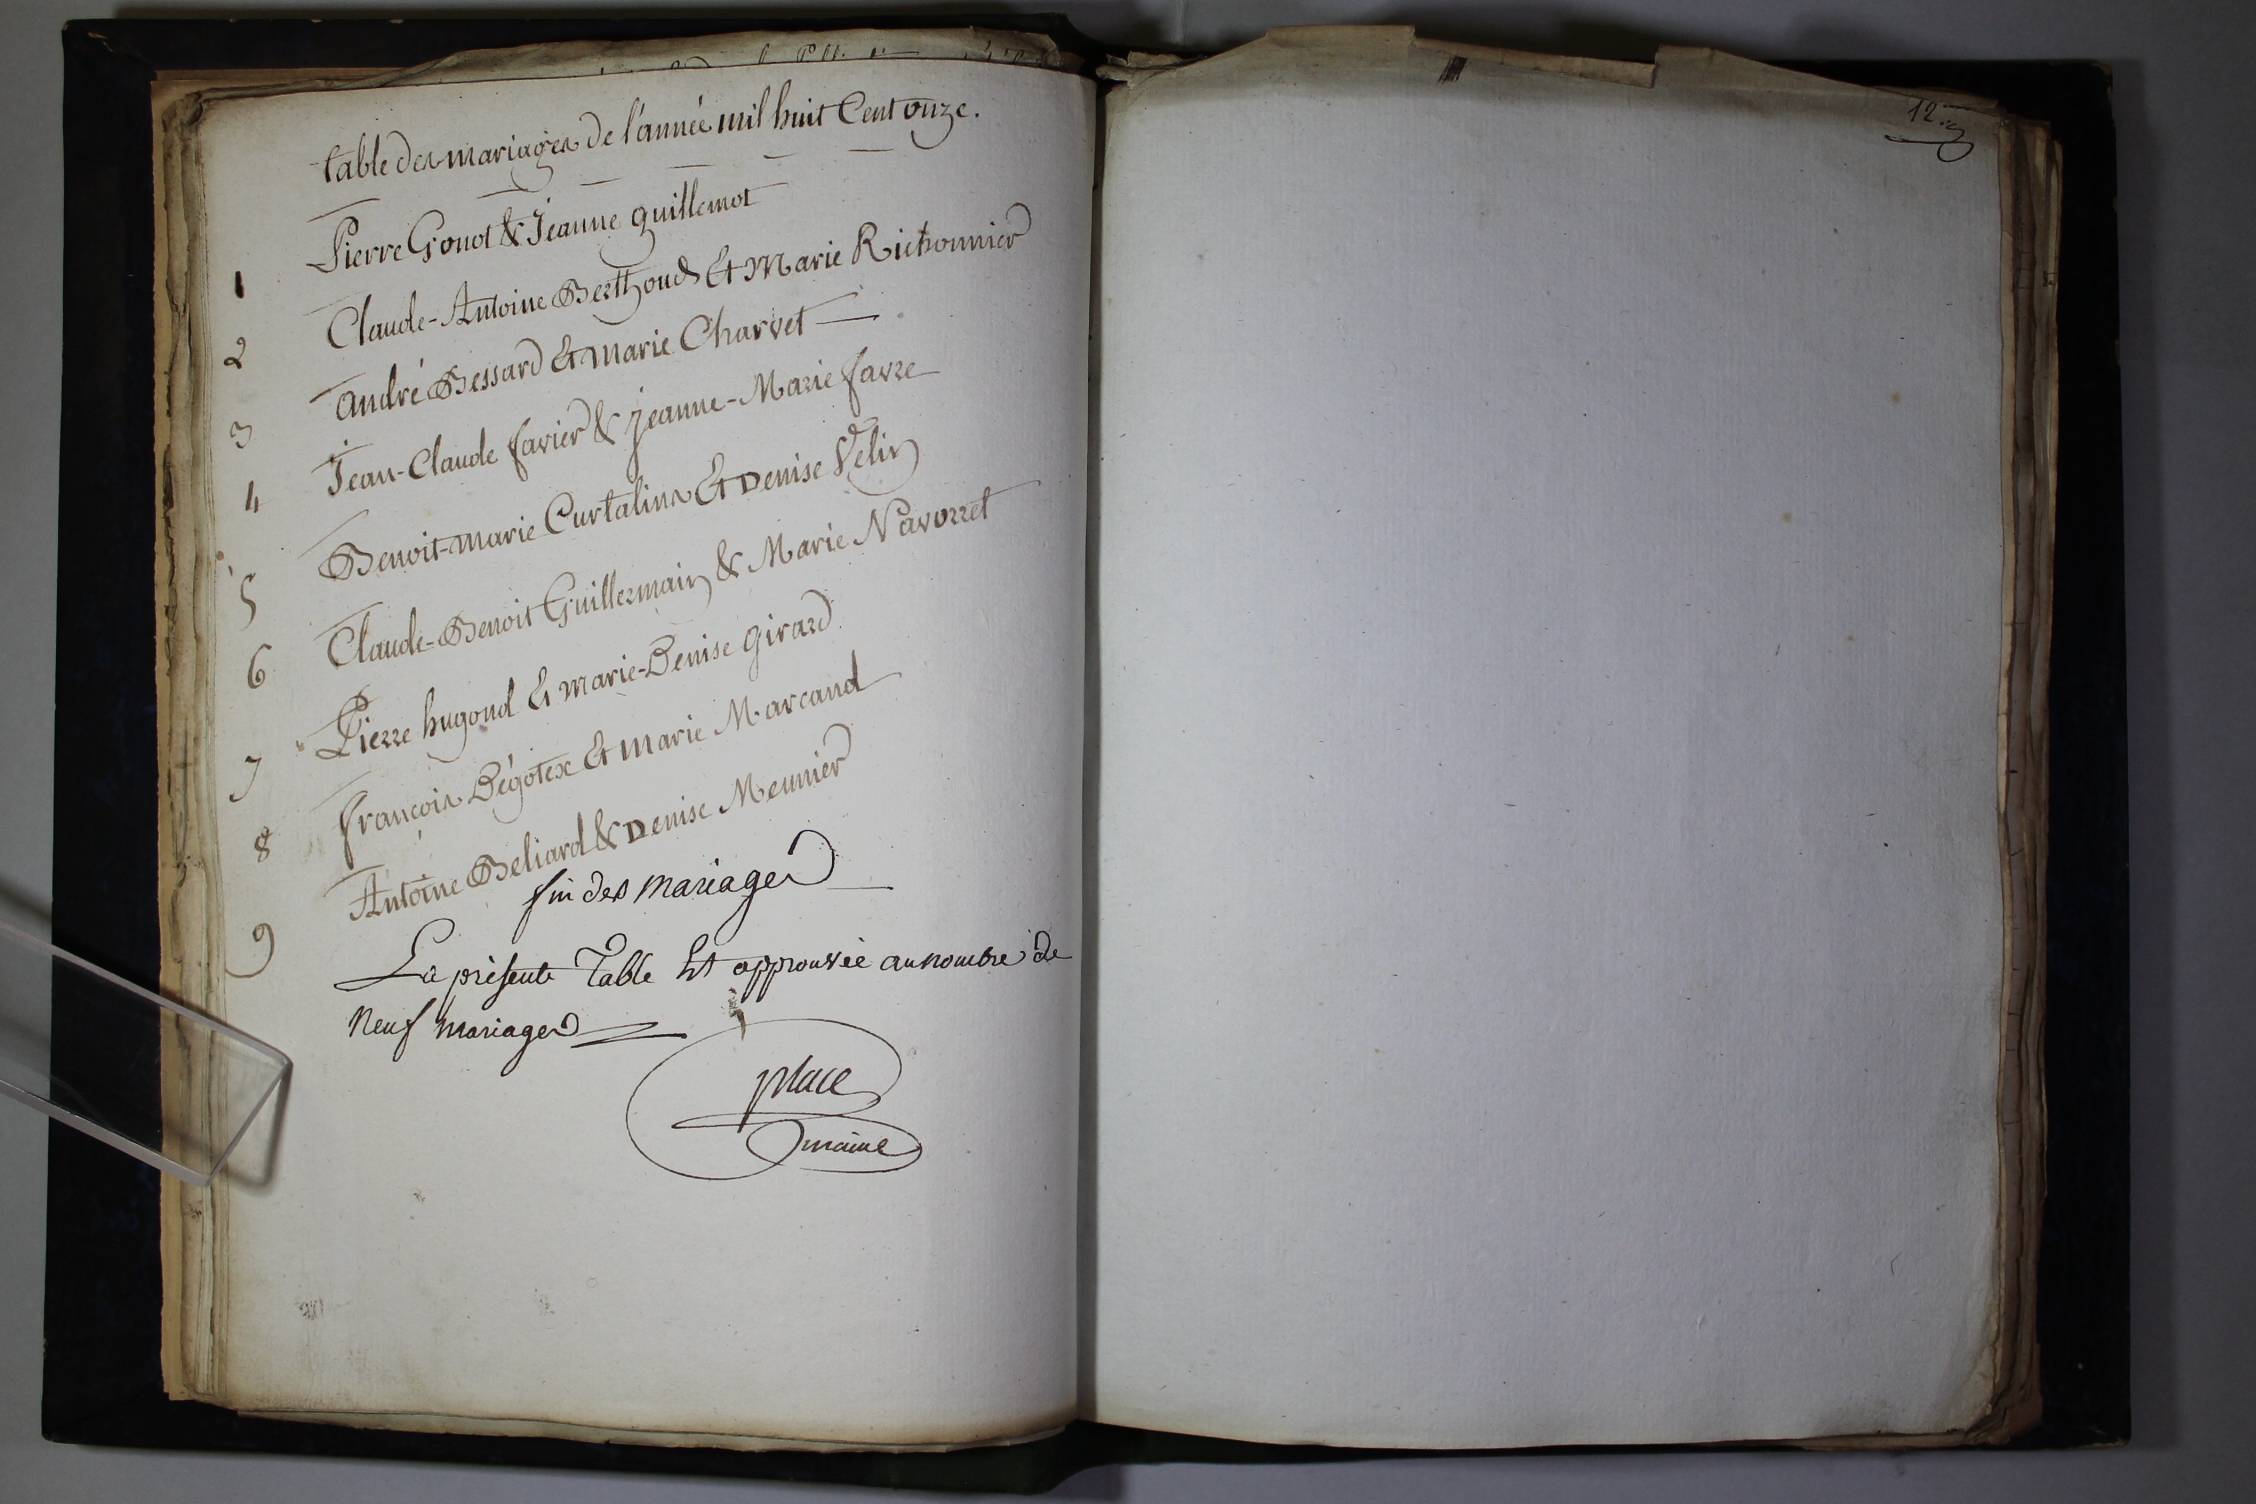 table des mariages de l'année mil huit Cent onze.
1 Pierre Gonot & Jeanne guillemot
2 Claude-Antoine Berthoud Et Marie Richonnier
3 andré Bessard Et marie Charvet
4 Jean-Claude favier & jeanne-Marie favre
5 Benoit-marie Curtalins Et Denise Velin
6 Claude-Benoit Guillermain & Marie Navorret
7 Pierre hugond Et marie-Denise girard
8 françois Dégotex Et marie Marcand
9 Antoine Beliard & Denise Meunier
fin des mariages
La présente Table Est approuvée au nombre de
neuf mariages
place
maire
12.